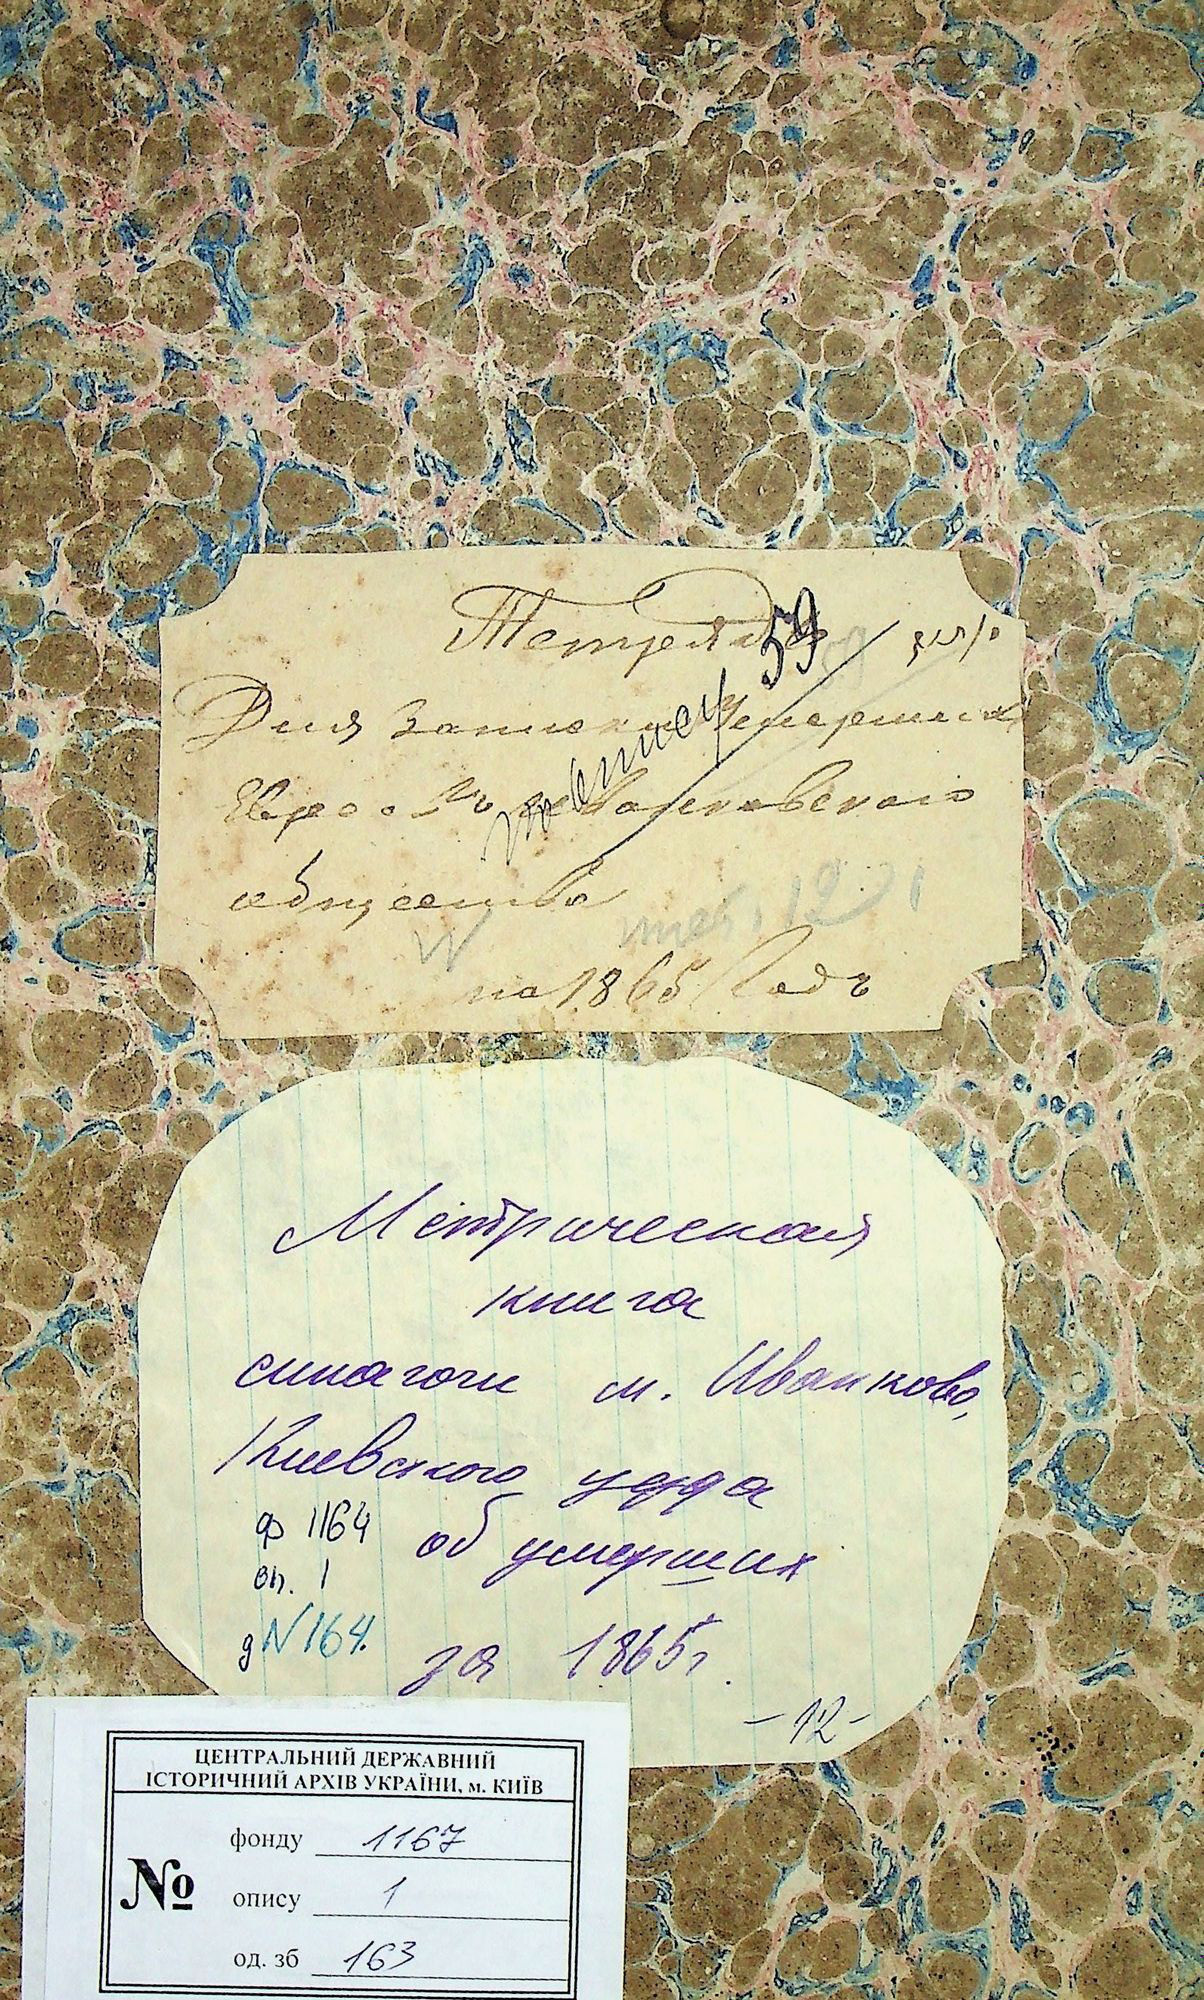 Тетрадь
59
Для записки Умершихъ
Еврее въ Иванковскаго
общества
1221
на 1865 Годъ
Метрическая
книга
синагоги м. Иванково,
Киевского уезда
ф 1164 об умерших
оп. 1
д N 164. за 1865г.
-12-
ЦЕНТРАЛЬНИЙ ДЕРЖАВНИЙ
ІСТОРИЧНИЙ АРХІВ УКРАЇНИ, м. КИЇВ
№
фонду 1167
опису 1
од. зб 163